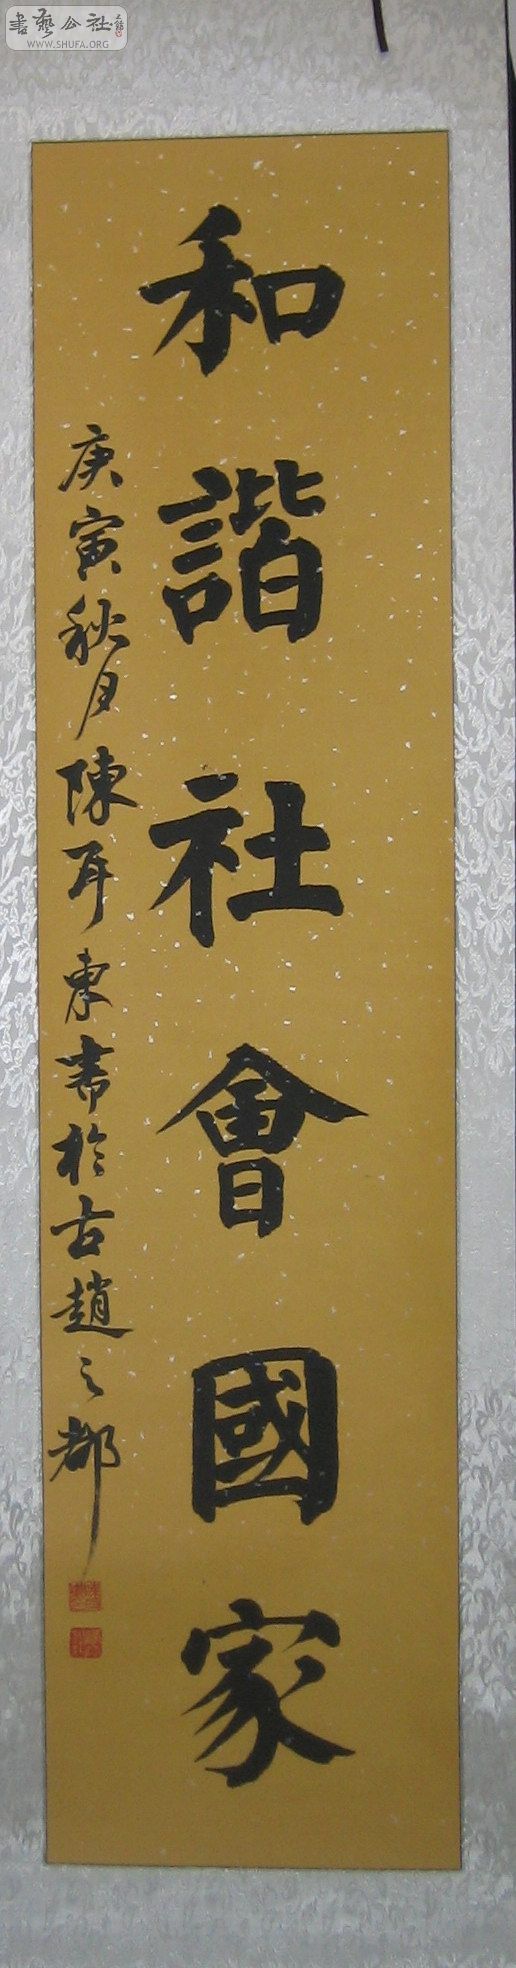 書藝公社
WWW.SHUFA.ORG
和諧社會國家
庚寅秋月陳耳東書於古趙之都